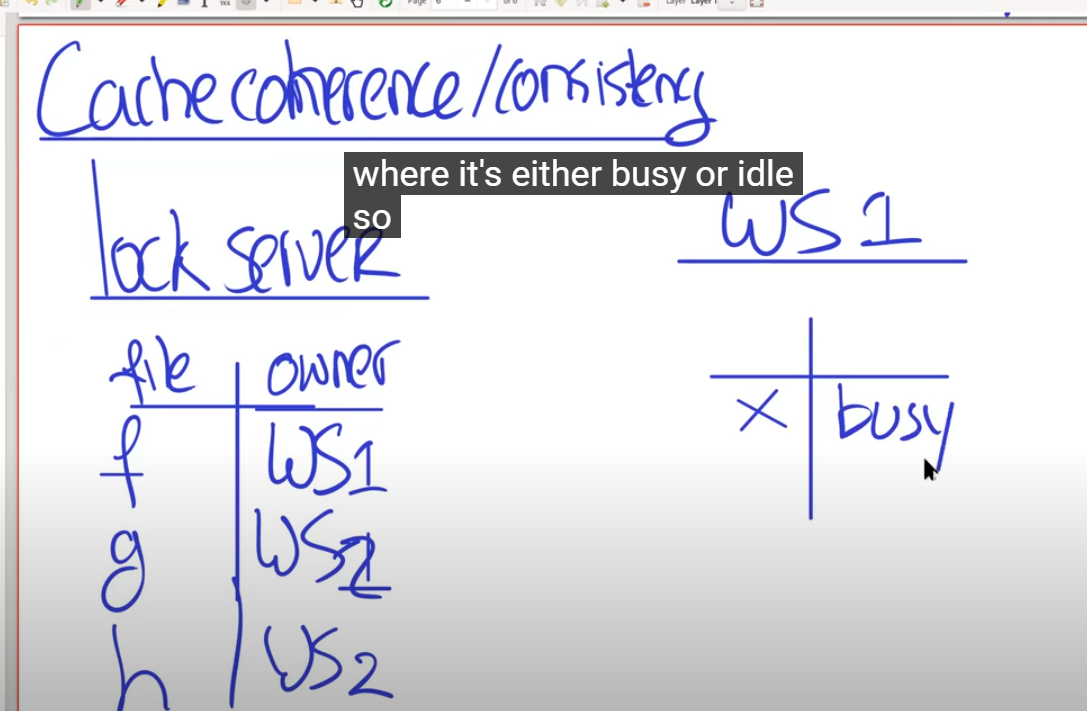 Page 6 of 6 Layer Layer 1
Cache coherence/consistency
where it's either busy or idle
so
lock server
WS1
file owner
f WS1
x busy
g
h WS2